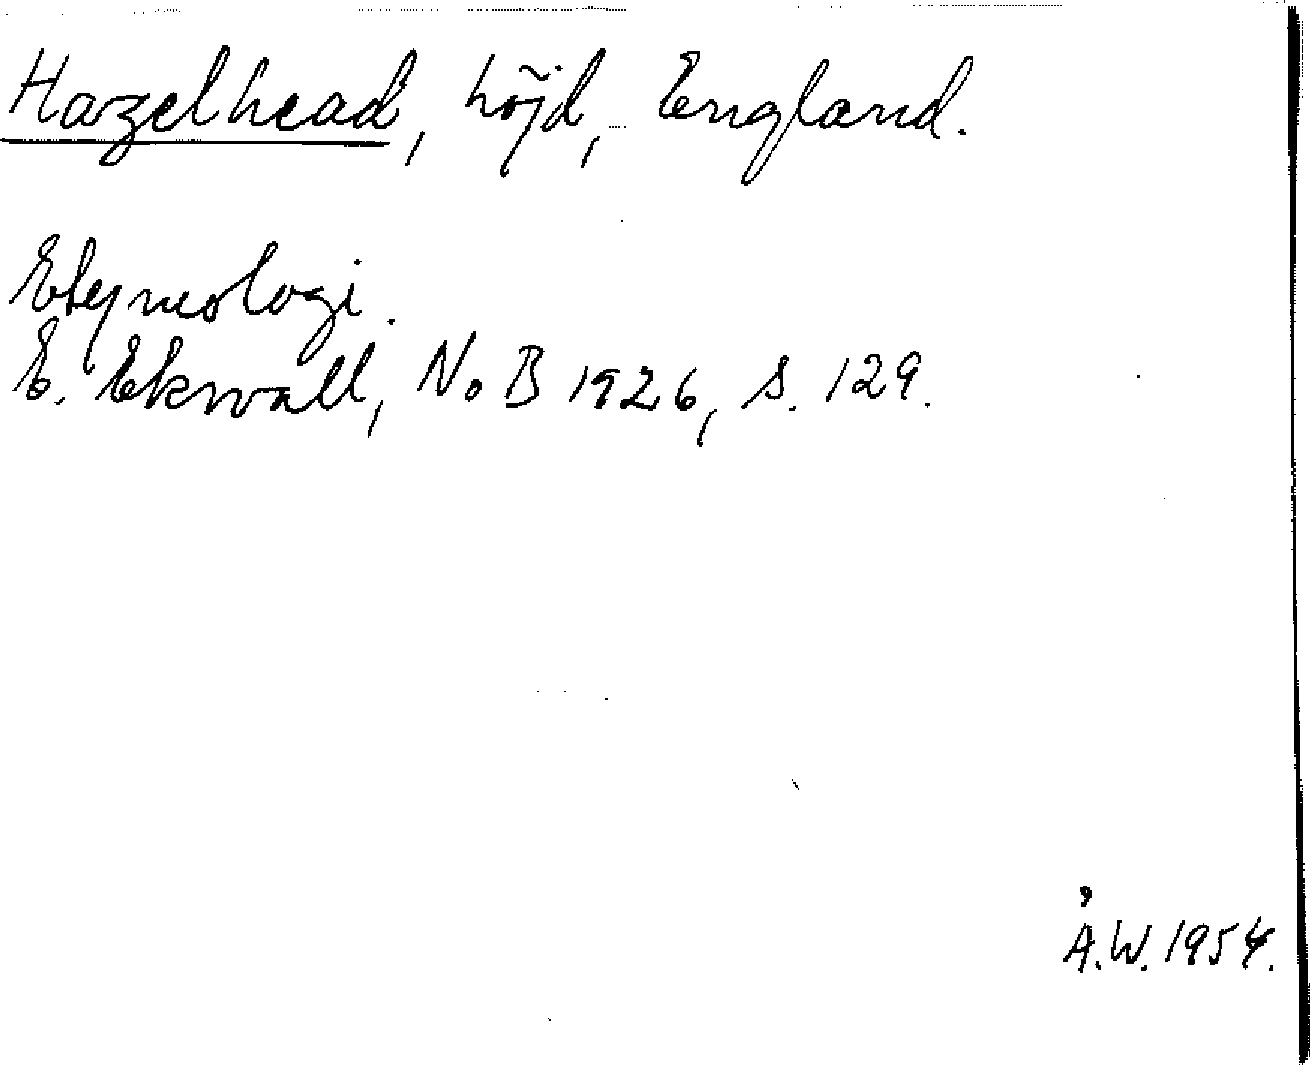 Hazelhead, höjd, England.
Etymologi.
E. Ekwall, NoB 1926, s. 129.
Å.W. 1954.